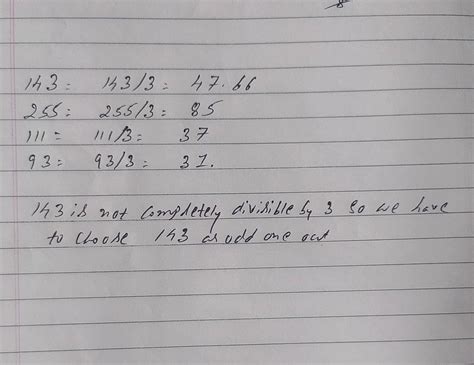 143 = 143/3 = 47.66
255 = 255/3 = 85
111 = 111/3 = 37
93 = 93/3 = 31.
143 is not completely divisible by 3 so we have
to choose 143 as odd one out